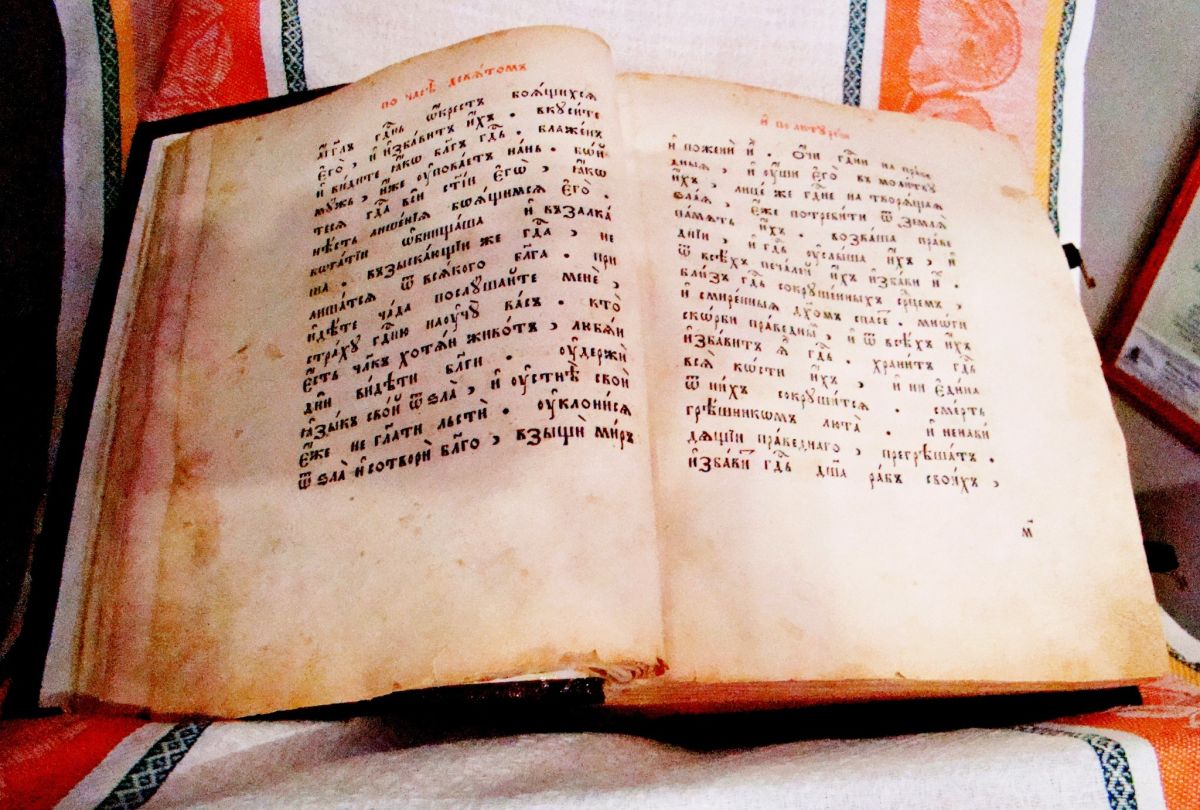 по часѣ̀ девѧ́томъ
а҆́гг҃лъ гдⷭ҇нь ѡ҆́крестъ боѧ́щихсѧ
є҆гѡ̀ , и҆ и҆зба́витъ и҆́хъ . вкꙋси́те
и҆ ви́дите ꙗ҆́кѡ бл҃гъ гдⷭ҇ь . блаже́нъ
мꙋ́жъ , и҆́же ᲂу҆пова́етъ на́нь . бо́йтесѧ
гдⷭ҇а всѝ ст҃і́и є҆гѡ̀ , ꙗ҆́кѡ
нѣ́сть лише́нїѧ боѧ́щимсѧ є҆гѡ̀ .
бога́тїи ѡ҆бнища́ша и҆ взалка́
ша . взыска́ющїи же гдⷭ҇а , не
лиша́тсѧ ѿ всѧ́кого бл҃га . прї
и҆дѣ́те ча́да послꙋ́шайте менѐ ,
стра́хꙋ гдⷭ҇ню наꙋчꙋ̀ ва́съ . кто̀
є҆́сть чл҃къ хотѧ́и живо́тъ , любѧ́и
дни̑ ви́дѣти бл҃ги . ᲂу҆держѝ
ꙗ҆зы́къ сво́й ѿ ѕла̀ , и҆ ᲂу҆стнѣ̀ сво́й
є҆́же не гл҃ати льстѝ . ᲂу҆клони́сѧ
ѿ ѕла̀ и҆ сотворѝ бл҃го , взыщѝ ми́ръ
и҆ по литꙋргїи
и҆ поженѝ и҆̀ . ѻ҆́чи гдⷭ҇ни на пра́ве
дныѧ , и҆ ᲂу҆́ши є҆гѡ̀ въ моли́твꙋ
и҆́хъ , лице́ же гдⷭ҇не на творѧ́щаѧ
ѕла́ѧ , є҆́же потреби́ти ѿ землѧ̀
па́мѧть и҆́хъ . возва́ша пра́ве
днїи , и҆ гдⷭ҇ь ᲂу҆слы́ша и҆́хъ , и҆
ѿ всѣ́хъ печа́лей и҆́хъ и҆зба́ви и҆̀ .
бли́з гдⷭ҇ь сокрꙋше́нныхъ ср҃цемъ ,
и҆ смире́нныѧ дх҃омъ спасе́ . мнѡ́ги
скѡ́рби пра́веднымъ , и҆ ѿ всѣ́хъ и҆́хъ
и҆зба́витъ ѧ҆̀ гдⷭ҇ь . храни́тъ гдⷭ҇ь
всѧ̀ кѡ́сти и҆́хъ , и҆ ни є҆ди́на
ѿ ни́хъ сокрꙋши́тсѧ . сме́рть
грѣ́шникомъ люта̀ . и҆ ненави́
дѧщїи пра́веднаго , прегрѣша́тъ .
и҆зба́витъ гдⷭ҇ь дш҃а ра́бъ свои́хъ ,
м҃